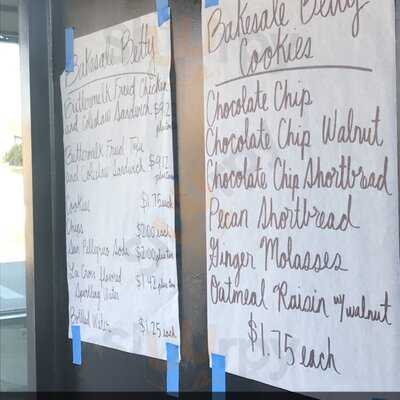 Bakesale Betty
Buttermilk Fried Chicken
and Coleslaw Sandwich
Buttermilk Fried Tofu
and Coleslaw Sandwich
Cookies $1.75 each
Chips $2.00 each
San Pellegrino Soda $2.00 plus tax
La Croix Flavored $1.42 plus tax
Sparkling Water
Bottled Water $1.25 each
Bakesale Betty
Cookies
Chocolate Chip
Chocolate Chip Walnut
Chocolate Chip Shortbread
Pecan Shortbread
Ginger Molasses
Oatmeal Raisin w/ walnut
$1.75 each